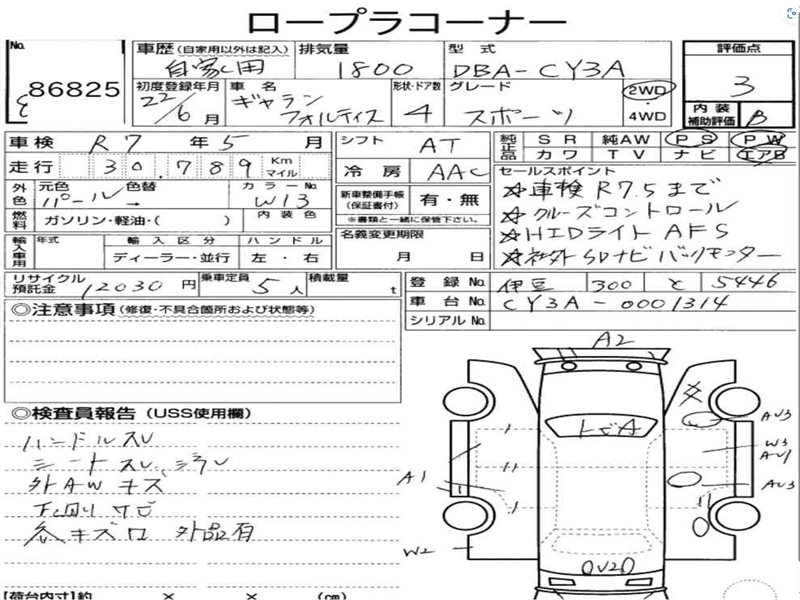 ロープラコーナー
No.
86825
車歴 (自家用以外は記入)
自家用
排気量
1800
型式
DBA-CY3A
評価点
3
初度登録年月
22/6月
車名
ギャランフォルティス
形状・ドア数
4
グレード
スポーツ
2WD
・
4WD
内装
補助評価 B
車検 R7年5月
シフト AT
純正品
SR 純AW PS PW
カワ TV ナビ エアB
走行 30.789 Km マイル
冷房 AAC
セールスポイント
☆車検R7.5まで
☆クルーズコントロール
☆HIDライト AFS
☆社外SDナビ バックモニター
外色
元色 パール
色替 →
カラーNo. W13
新車整備手帳
(保証書付)
有・無
※書類と一緒に保管下さい。
燃料
ガソリン・軽油・( )
内装色
名義変更期限
月 日
輸入車用
年式
輸入区分
ハンドル
ディーラー・並行
左・右
リサイクル
預託金
12030円
乗車定員 5人
積載量 t
登録No. 伊豆 300 と 5446
車台No. CY3A-0001314
シリアルNo.
◎注意事項 (修復・不具合箇所および状態等)
◎検査員報告 (USS使用欄)
ハンドルスレ
シートスレ、シラレ
外AWキズ
下廻りサビ
キズ凹 外品有
A2
トビA
AU3
W3
AU1
AU3
A1
W2
【荷台内寸】約 × × (cm)